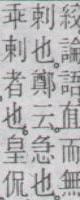 絞論語直而無
刺也。鄭云急也。
乖刺者也。皇侃